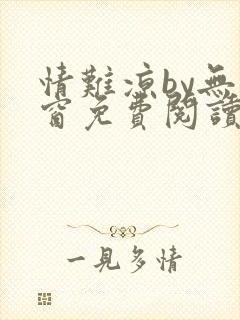 情難涼by無
窗免費閱讀
一見多情